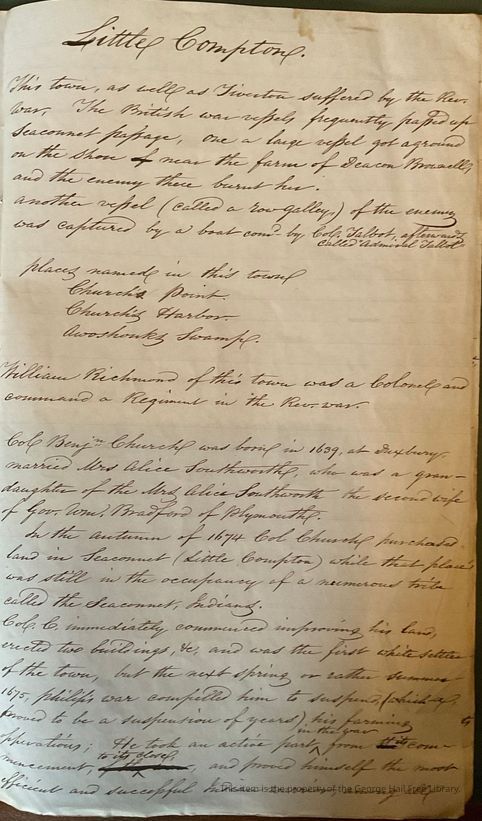 Little Compton.
This town, as well as Tiverton suffered by the Rev.
war. The British war vessels frequently passed up
Seaconnet passage, one a large vessel got aground
on the shore near the farm of Deacon Brownell,
and the enemy there burnt her.
another vessel (called a row galley,) of the enemy
was captured by a boat comd by Col. Talbot, afterwards
called Admiral Talbot
places named in this town
Church's Point.
Church's Harbor.
Awoshonks Swamp.
William Richmond of this town was a Colonel and
command a Regiment in the Rev. war.
Col Benjn Church was born in 1639, at Duxbury.
married Mrs Alice Southworth, who was a gran-
daughter of the Mrs Alice Southworth the second wife
of Gov. Wm. Bradford of Plymouth.
In the autumn of 1674 Col Church purchased
land in Seaconnet (Little Compton) while that place
was still in the occupancy of a numerous tribe
called the Seaconnet, Indians.
Col. C. immediately commenced improving his land,
erected two buildings, &c, and was the first white settler
of the town, but the next spring or rather summer
1675, philip's war compelled him to suspend, (which
proved to be a suspension of years) his farming
opperations; He took an active part in the war from its com-
mencement, to its close, and proved himself the most
efficient and successful
This item is the property of the George Hail Free Library.